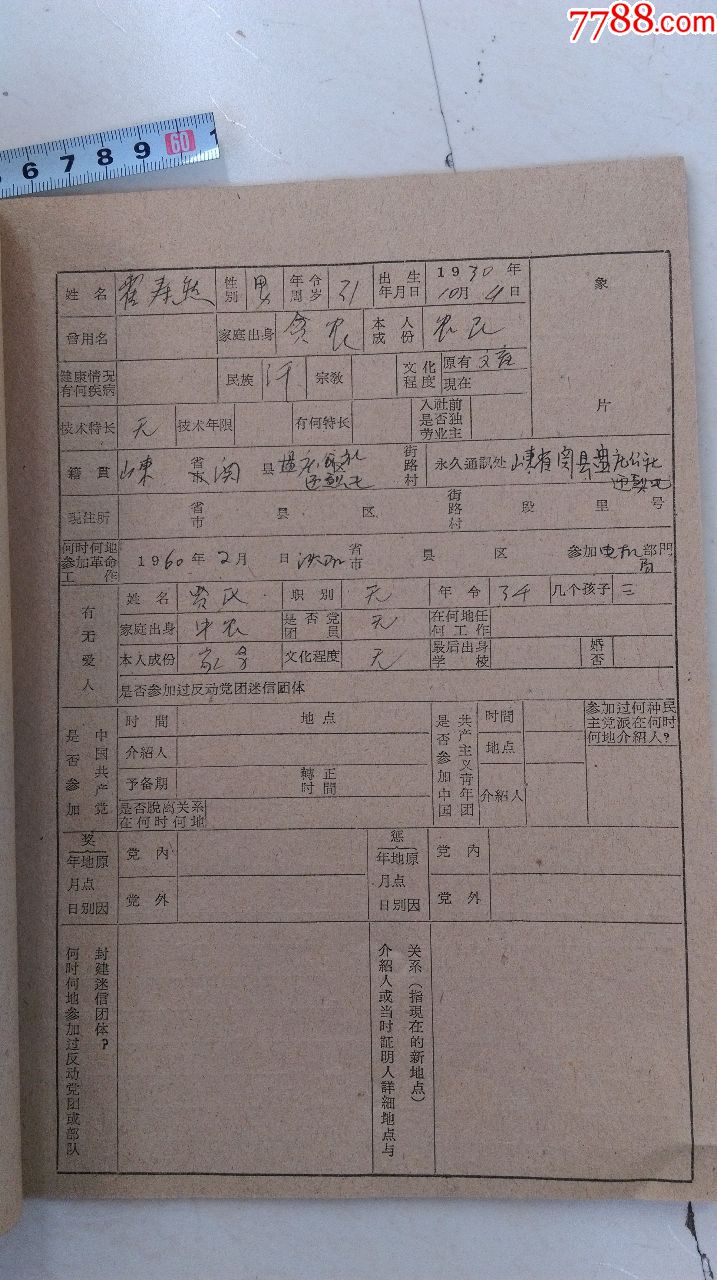 7788.com
6 7 8 9 60 1
姓名 霍寿 性别 男 年令周岁 31 出生年月日 1930年10月4日 象片
曾用名 家庭出身 贫农 本人成份 农民
健康情况有何疾病 民族 汗 宗教 文化程度 原有 文盲 现在
技术特长 无 技术年限 有何特长 入社前是否独劳业主
籍貫 山東 省市 県 区 街路村 永久通訊处 山東省 县 公社
现住所 省市 县 区 街路村 段 里 号
何时何地参加革命工作 1960年2月 日 省市 县 区 参加电机局部門
有无爱人 姓名 氏 职别 无 年令 34 几个孩子 三
家庭出身 中农 是否党团員 无 在何地任何工作
本人成份 家 文化程度 无 最后出身学校 婚否
是否参加过反动党团迷信团体
是否参加中国共产党 时間 地点 是否参加中国共产主义青年团 时間 参加过何种民主党派在何时何地介紹人?
介紹人 地点
予备期 轉正时間 介紹人
是否脫离关系在何时何地
奖 年月日 地点别 原因 党内 惩 年月日 地点别 原因 党内
党外 党外
何时何地参加过反动党团或部队封建迷信团体?
介紹人或当时証明人詳細地点与关系(指現在的新地点)